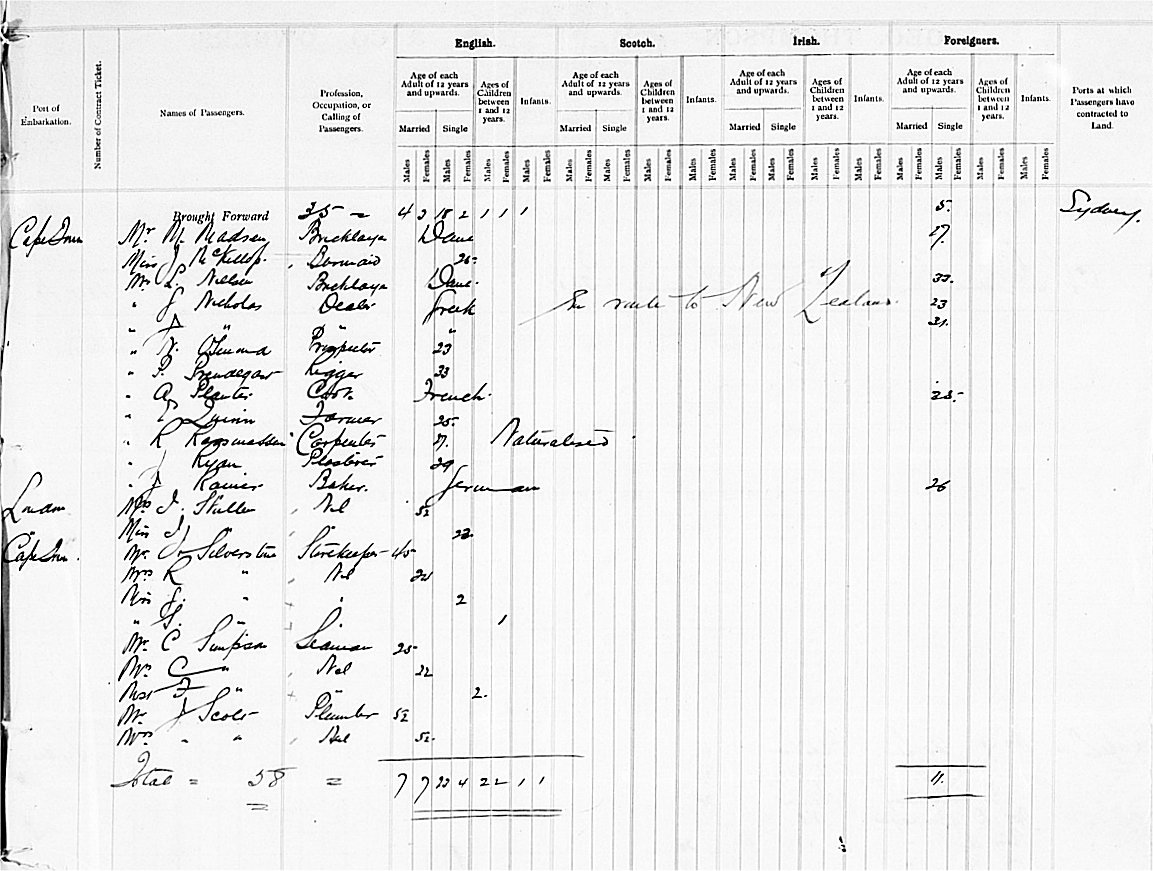 English. Scotch. Irish. Foreigners.
Port of Embarkation. Number of Contract Ticket. Names of Passengers. Profession, Occupation, or Calling of Passengers. Age of each Adult of 12 years and upwards. Ages of Children between 1 and 12 years. Infants. Age of each Adult of 12 years and upwards. Ages of Children between 1 and 12 years. Infants. Age of each Adult of 12 years and upwards. Ages of Children between 1 and 12 years. Infants. Age of each Adult of 12 years and upwards. Ages of Children between 1 and 12 years. Infants. Ports at which Passengers have contracted to Land.
Married Single Married Single Married Single Married Single
Males Females Males Females Males Females Males Females Males Females Males Females Males Females Males Females Males Females Males Females Males Females Males Females Males Females Males Females Males Females Males Females
Brought Forward 35 = 4 3 18 2 1 1 1 5. Sydney.
Cape Town Mr M. Madsen Bricklayer Dane 27.
Miss J McKillop. Barmaid 26.
Mr L. Nielsen Bricklayer Dane. 33.
" J Nicholas Dealer Greek En route to New Zealand. 23
" " " " 31.
" Prospector 23
" P. Prendegast Rigger 33
" A. Plantei Cook. French. 28.
" E Quinn Farmer 25.
" R Rassmussen Carpenter 27. Naturalised.
" J Ryan Plasterer 29
" J Rainer Baker. German 26
London Mrs I. Nil 52
Miss I. " " 22.
Cape Town. Mr Silverstone Storekeeper 45
Mrs R " Nil 24
Miss J. " " 2
" S. " 1
Mr C Simpson Seaman 25
Mrs C " Nil 22
" " 2.
Mr J Scott Plumber 52
Mrs " " Nil 52.
Total = 58 = 7 7 23 4 2 2 1 1 11.